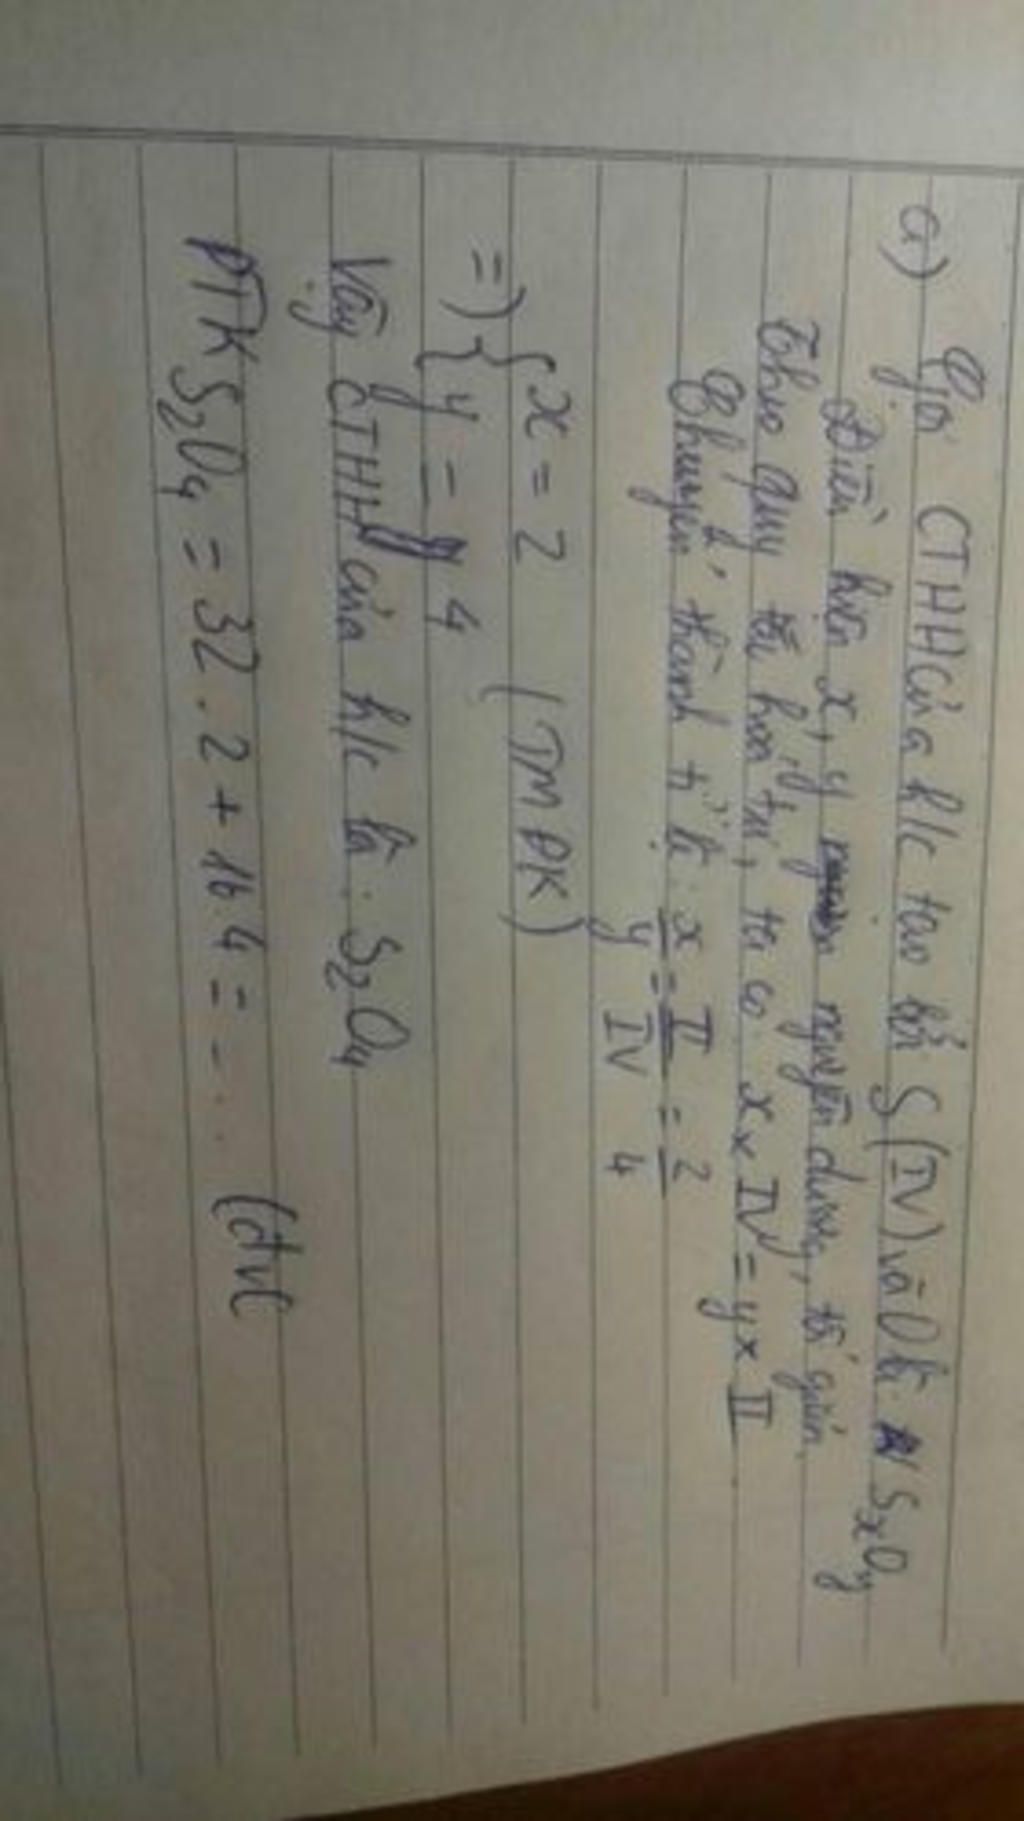 a) Gọi CTHH của h/c tạo bởi S(IV) và O là SxOy
Điều kiện x, y nguyên dương, tối giản.
Theo quy tắc hoá trị, ta có x x IV = y x II
Chuyển thành tỉ lệ: x/y = II/IV = 2/4
=> { x = 2
{ y = 4 (TMĐK)
Vậy CTHH của h/c là: S2O4
PTK S2O4 = 32 . 2 + 16.4 = ... (đvC